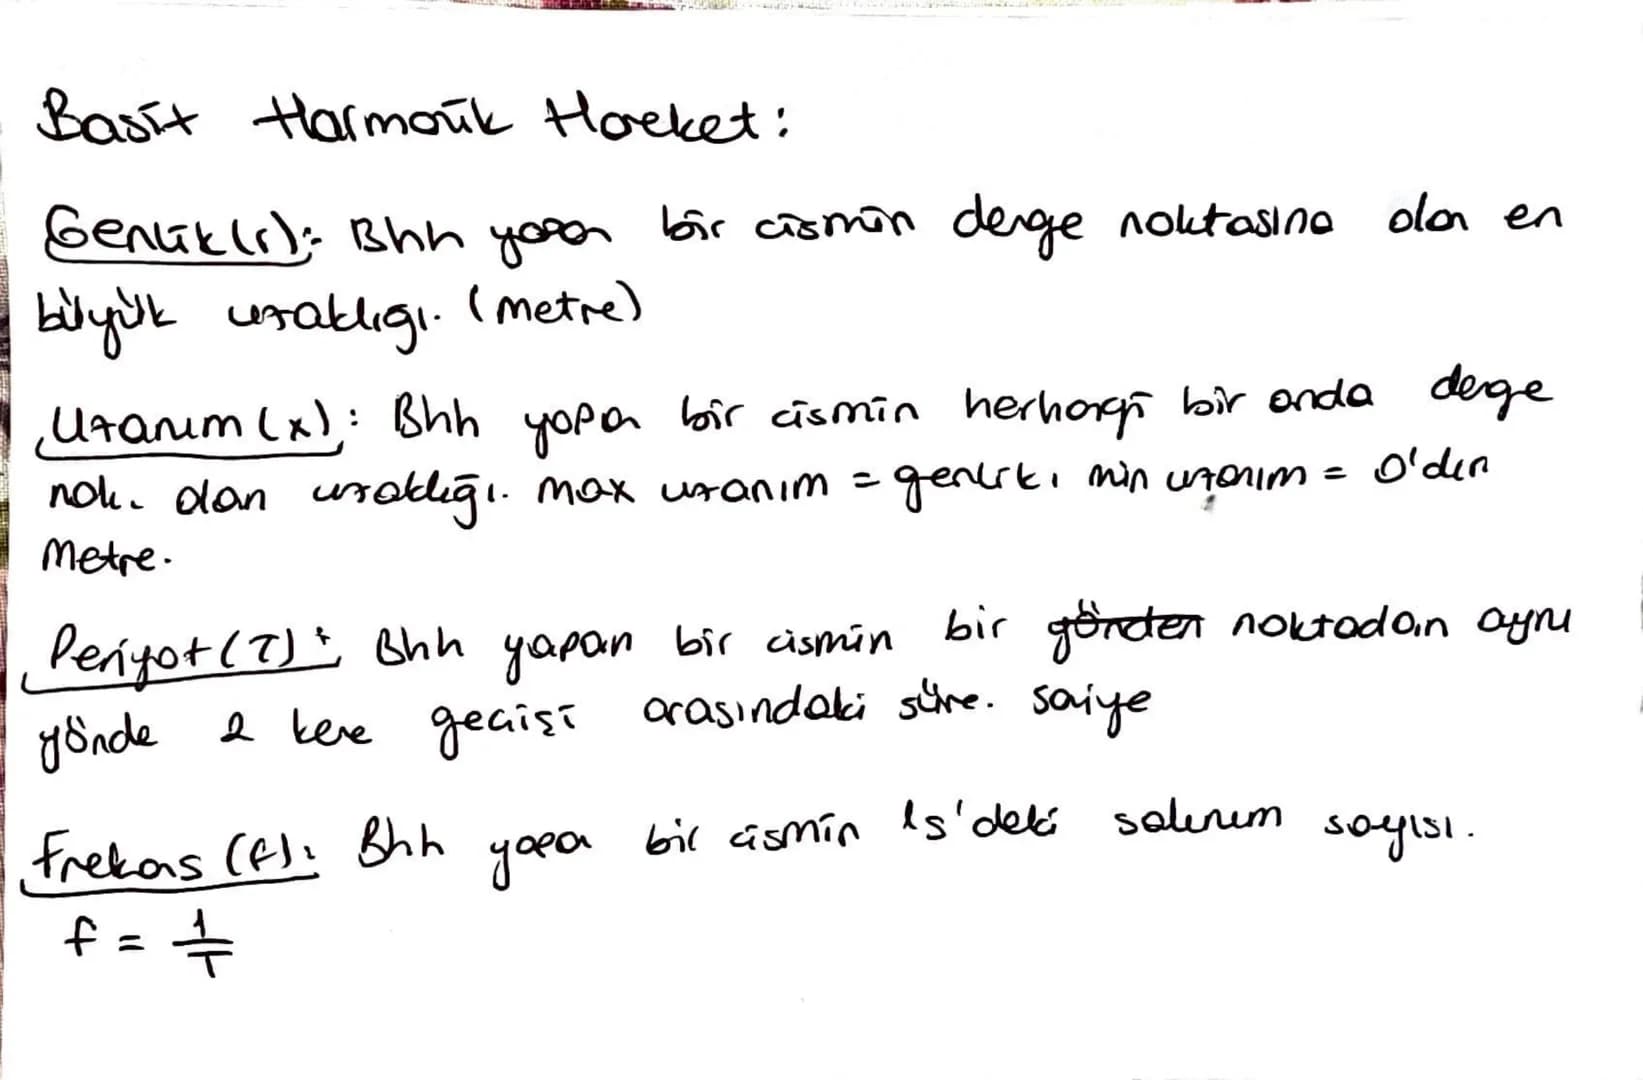 Basit Harmonik Hareket:
Genlik (r): Bhh yapan bir cismin denge noktasına olan en
büyük uzaklığı. (metre)
Uzanım (x): Bhh yapan bir cismin herhangi bir anda denge
nok. olan uzaklığı. max uzanım = genlik, min uzanım = 0'dır
Metre.
Periyot (T): Bhh yapan bir cismin bir yönden noktadan aynı
yönde 2 kere geçişi arasındaki süre. saniye
Frekans (f): Bhh yapan bir cismin 1s'deki salınım sayısı.
f = 1/T